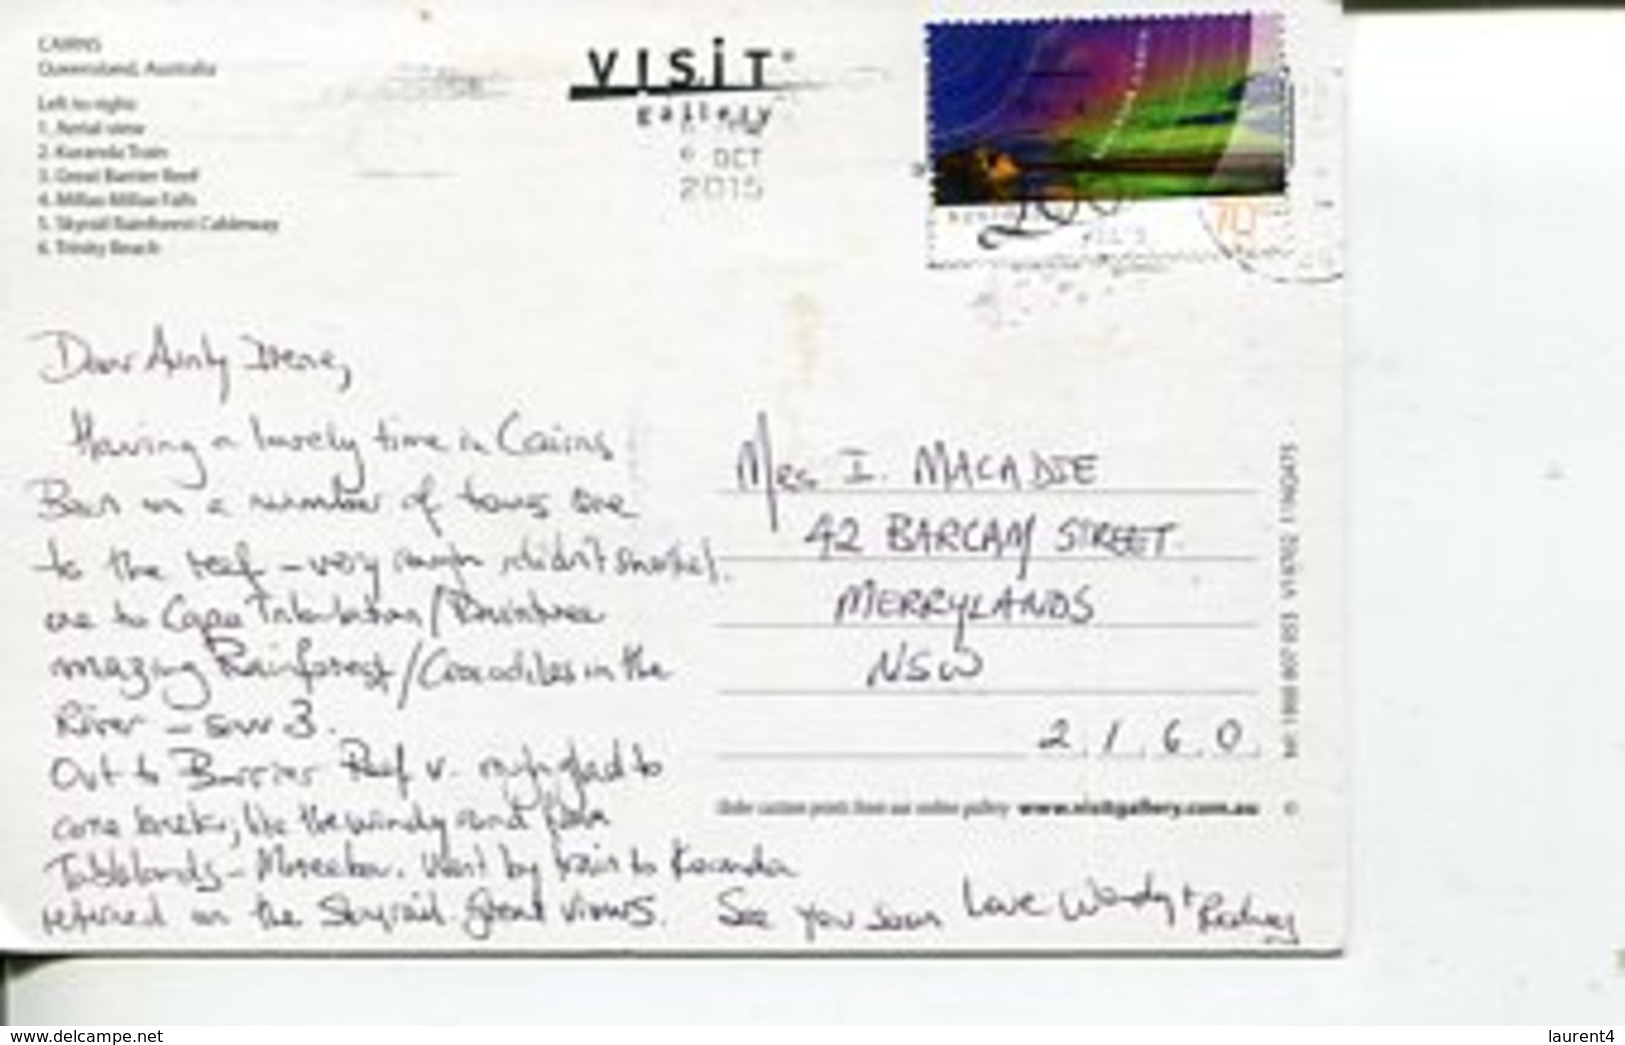 CAIRNS
Queensland, Australia
Left to right:
1. Aerial view
2. Kuranda Train
3. Great Barrier Reef
4. Millaa Millaa Falls
5. Skyrail Rainforest Cableway
6. Trinity Beach
VISiT
gallery
6 OCT
2015
Dear Aunty Irene,
Having a lovely time in Cairns
Been on a number of tours one
to the reef - very rough didn't snorkel.
one to Cape Tribulation/Daintree
mazing Rainforest/Crocodiles in the
River - saw 3.
Out to Barrier Reef v. rough glad to
come back, the windy and
Tablelands - Mareeba. Went by train to Kuranda
returned on the Skyrail. Great views. See you soon Love Wendy + Rodney
Mrs I. MACADIE
42 BARCAM STREET
MERRYLANDS
NSW
2160
Order custom prints from our online gallery www.visitgallery.com.au ©
www.delcampe.net
laurent4